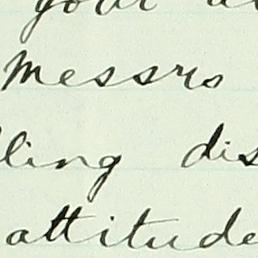 your
Messrs
ling dis
attitude